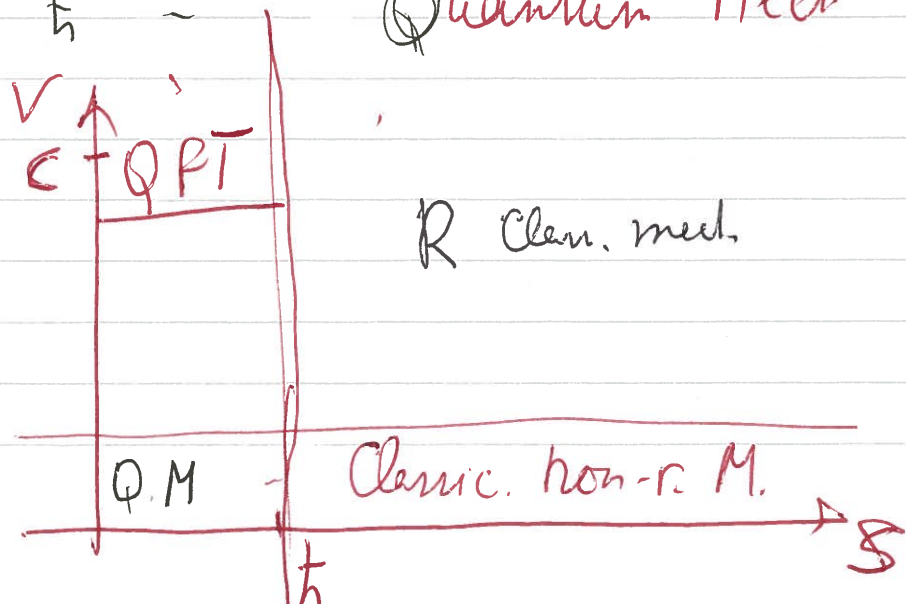 ħ ~ Quantum Mech
V
c QFT
R Class. mech.
Q.M Classic. non-r. M.
S
ħ